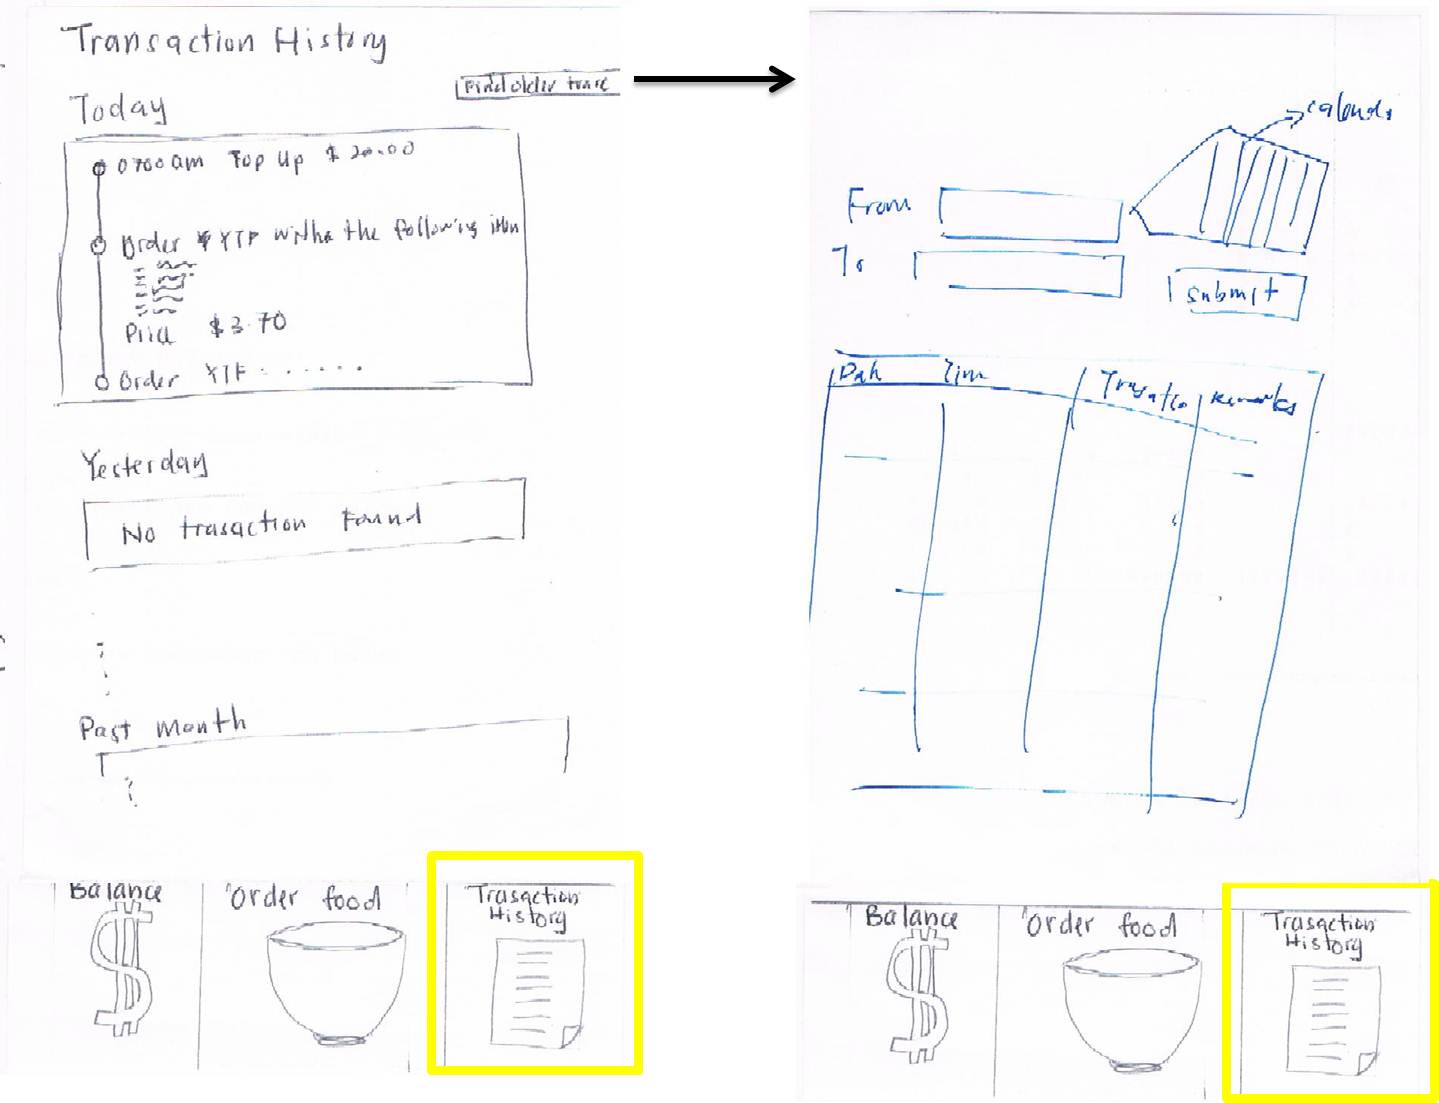 Transaction History
Find older trans
Today
0700am Top Up $ 20.00
Order XTF withe the following item
Price $3.70
Order XTF . . . . . .
Yesterday
No trasaction Found
Past Month
Balance
Order food
Trasaction
History
From
To
submit
Time
remarks
Balance
Order food
Trasaction
History